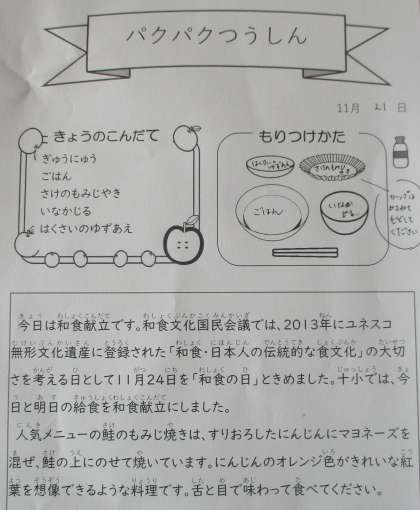 パクパクつうしん
11月 21 日
きょうのこんだて
ぎゅうにゅう
ごはん
さけのもみじやき
いなかじる
はくさいのゆずあえ
もりつけかた
はくさいの
ゆずあえ
さけのもみじ
やき
ごはん
いなか
じる
カップは
かさねて
もどして
ください
今日は和食献立です。和食文化国民会議では、2013年にユネスコ
無形文化遺産に登録された「和食・日本人の伝統的な食文化」の大切
さを考える日として11月24日を「和食の日」ときめました。十小では、今
日と明日の給食を和食献立にしました。
人気メニューの鮭のもみじ焼きは、すりおろしたにんじんにマヨネーズを
混ぜ、鮭の上にのせて焼いています。にんじんのオレンジ色がきれいな紅
葉を想像できるような料理です。舌と目で味わって食べてください。